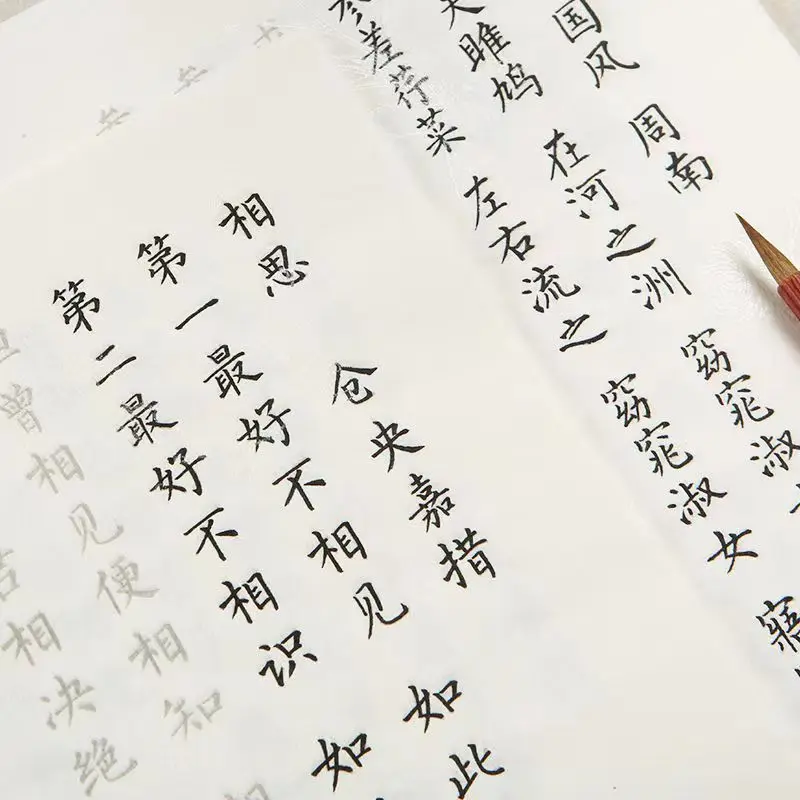 国风 周南
雎鸠 在河之洲 窈窕淑
参差荇菜 左右流之 窈窕淑女 寤
相思 仓央嘉措
第一最好不相见 如此
第二最好不相识 如
曾相见便相知 相
相决绝